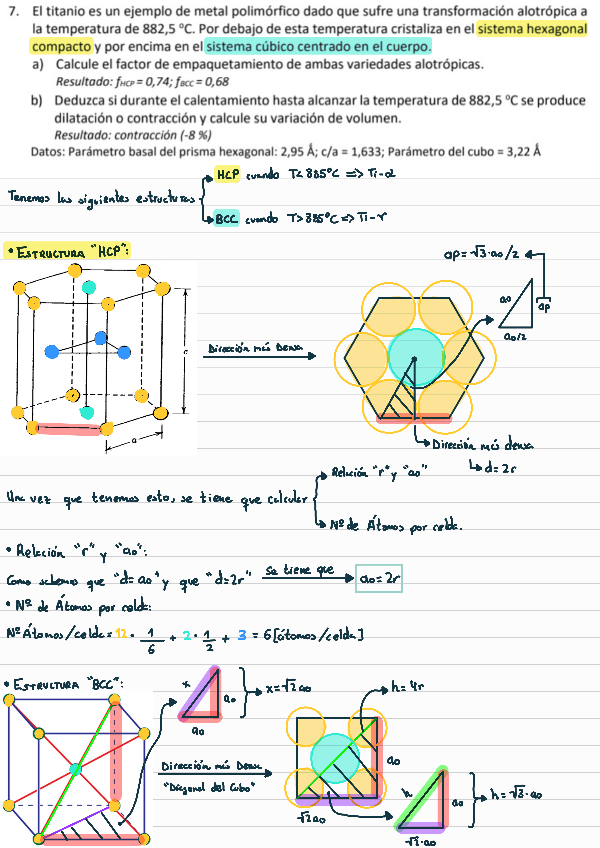 7. El titanio es un ejemplo de metal polimórfico dado que sufre una transformación alotrópica a
la temperatura de 882,5 ºC. Por debajo de esta temperatura cristaliza en el sistema hexagonal
compacto y por encima en el sistema cúbico centrado en el cuerpo.
a) Calcule el factor de empaquetamiento de ambas variedades alotrópicas.
Resultado: fHCP = 0,74; fBCC = 0,68
b) Deduzca si durante el calentamiento hasta alcanzar la temperatura de 882,5 ºC se produce
dilatación o contracción y calcule su variación de volumen.
Resultado: contracción (-8 %)
Datos: Parámetro basal del prisma hexagonal: 2,95 Å; c/a = 1,633; Parámetro del cubo = 3,22 Å
HCP cuando T< 885ºC => Ti-α
Tenemos las siguientes estructuras
BCC cuando T>885ºC => Ti-γ
• ESTRUCTURA "HCP":
ap=√3·ao/2
ao
ap
ao/2
c
a
Dirección más Densa
Dirección más densa
↳ d=2r
Una vez que tenemos esto, se tiene que calcular
Relación "r" y "ao"
Nº de Átomos por celda.
• Relación "r" y "ao":
Como sabemos que "d=ao" y que "d=2r" se tiene que ao=2r
• Nº de Átomos por celda:
Nº Átomos/celda= 12 · 1/6 + 2 · 1/2 + 3 = 6 [átomos/celda]
• ESTRUCTURA "BCC":
x
ao
ao
x=√2 ao
h=4r
Dirección más Densa
"Diagonal del Cubo"
ao
√2 ao
h
ao
√2·ao
h=√3·ao